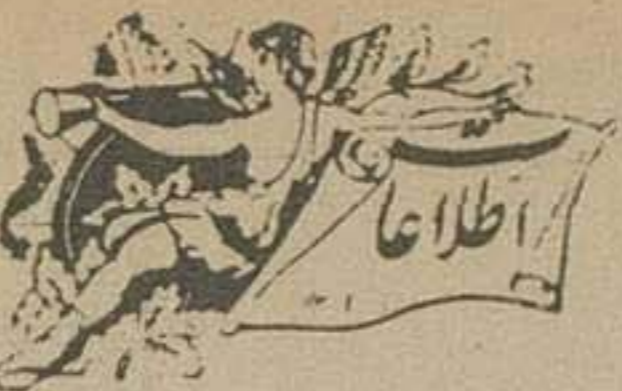 اطلاعات